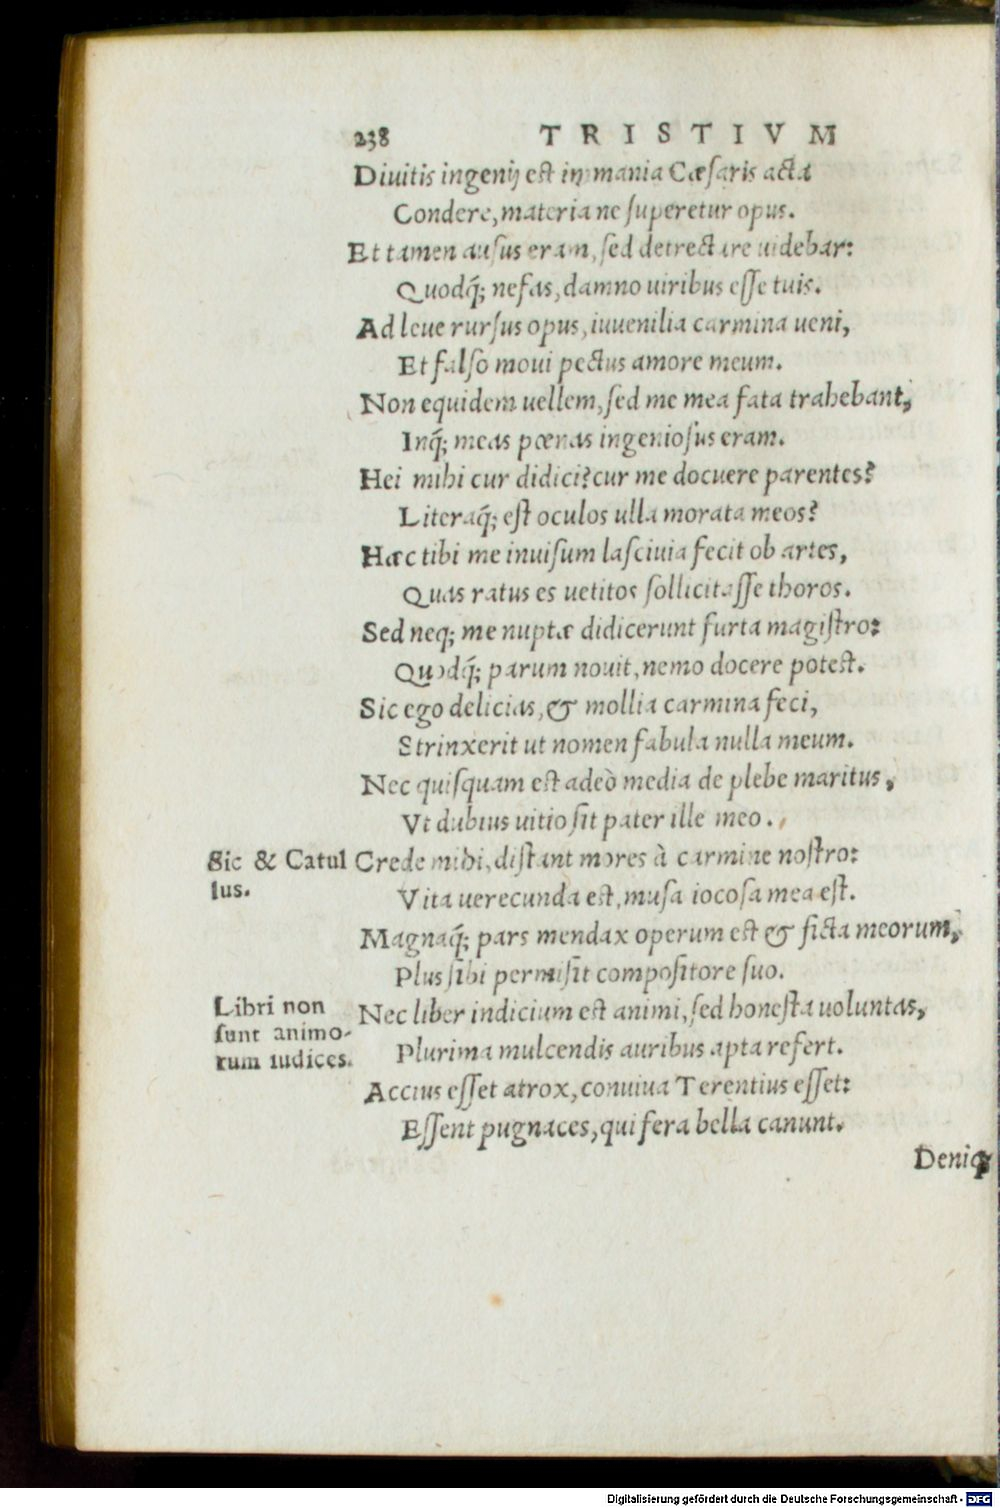 238 TRISTIVM
Diuitis ingenij est immania Cæsaris acta
Condere, materia ne superetur opus.
Et tamen ausus eram, sed detrectare uidebar:
Quodq́; nefas, damno uiribus esse tuis.
Ad leue rursus opus, iuuenilia carmina ueni,
Et falso moui pectus amore meum.
Non equidem uellem, sed me mea fata trahebant,
Inq́; meas pœnas ingeniosus eram.
Hei mihi cur didici? cur me docuere parentes?
Literaq́; est oculos ulla morata meos?
Hæc tibi me inuisum lasciuia fecit ob artes,
Quas ratus es uetitos sollicitasse thoros.
Sed neq; me nuptæ didicerunt furta magistro:
Quodq́; parum nouit, nemo docere potest.
Sic ego delicias, & mollia carmina feci,
Strinxerit ut nomen fabula nulla meum.
Nec quisquam est adeò media de plebe maritus,
Vt dubius uitio sit pater ille meo.
Sic & Catul
lus.
Crede mihi, distant mores à carmine nostro:
Vita uerecunda est, musa iocosa mea est.
Magnaq́; pars mendax operum est & ficta meorum,
Plus sibi permisit compositore suo.
Libri non
sunt animo-
rum iudices.
Nec liber indicium est animi, sed honesta uoluntas,
Plurima mulcendis auribus apta refert.
Accius esset atrox, conuiua Terentius esset:
Essent pugnaces, qui fera bella canunt.
Deniq;
Digitalisierung gefördert durch die Deutsche Forschungsgemeinschaft - DFG